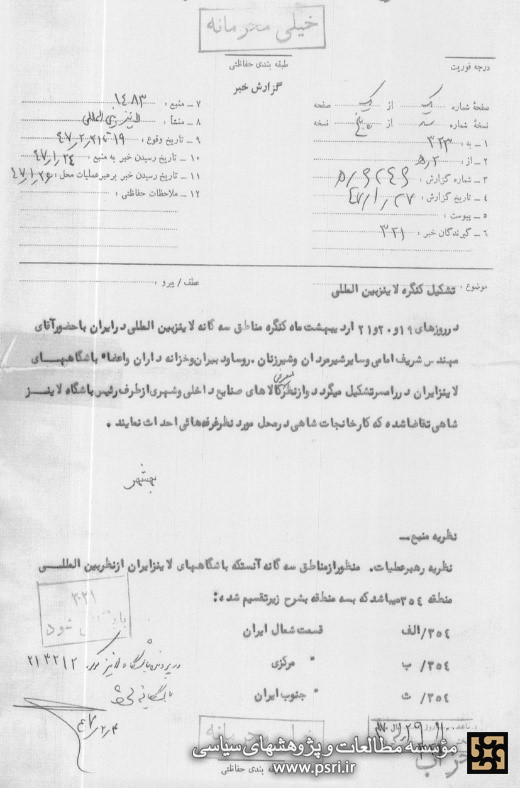 خیلی محرمانه
درجه فوریت
طبقه بندی حفاظتی
گزارش خبر
صفحهٔ شماره یک از یک صفحه
نسخهٔ شماره از نسخه
۱ ـ به : ۳۲۳
۲ ـ از : ۲ ﻫ
۳ ـ شماره گزارش :
۴ ـ تاریخ گزارش : ۴۷/۱/۲۷
۵ ـ پیوست :
۶ ـ گیرندگان خبر : ۳۲۱
۷ ـ منبع : ۱۴۸۳
۸ ـ منشأ : لاینز بین المللی
۹ ـ تاریخ وقوع : ۱۹ تا ۴۷/۲/۲۱
۱۰ ـ تاریخ رسیدن خبر به منبع : ۴۷/۱/۲۴
۱۱ ـ تاریخ رسیدن خبر برهبر عملیات محل : ۴۷/۱/۲۶
۱۲ ـ ملاحظات حفاظتی :
موضوع : تشکیل کنگره لاینزبین المللی
عطف / پیرو :
درروزهای ۱۹و۲۰و۲۱ اردیبهشت ماه کنگره مناطق سه گانه لاینزبین المللی درایران باحضورآقای
مهندس شریف امامی وسایرشیرمردان وشیرزنان ،روسا ودبیران وخزانه داران واعضاء باشگاههای
لاینزایران دررامسرتشکیل میگردد وازنظر معرفی کالاهای صنایع داخلی وشهری ازطرف رئیس باشگاه لاینز
شاهی تقاضاشده که کارخانجات شاهی درمحل مورد نظرغرفه هائی احداث نمایند .
بهشهر
نظریه منبع ـ
نظریه رهبرعملیات. منظورازمناطق سه گانه آنستکه باشگاههای لاینزایران ازنظربین المللی
منطقه ۳۵۴ میباشد که بسه منطقه بشرح زیرتقسیم شده :
۳۵۴/ الف قسمت شمال ایران
۳۵۴/ ب " مرکزی
۳۵۴/ ث " جنوب ایران
۳۰۲۱
شود
در پرونده باشگاه لاینز ۲۱۳۲۱۲
بایگانی شود
۴۷/۲/۴
خیلی محرمانه
طبقه بندی حفاظتی
مؤسسه مطالعات و پژوهشهای سیاسی
www.psri.ir